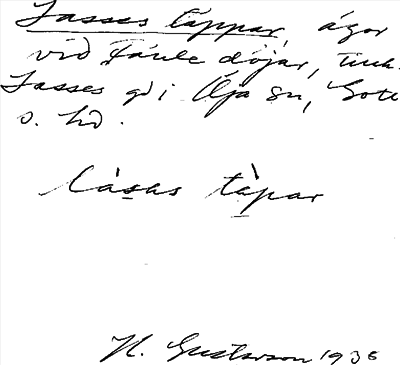 Lasses täppar, ägor
vid Fäule döjar, tunh.
Lasses gd i Öja sn, Gotl.
s. hd.
làsas tàpar
H. Gustavson 1936